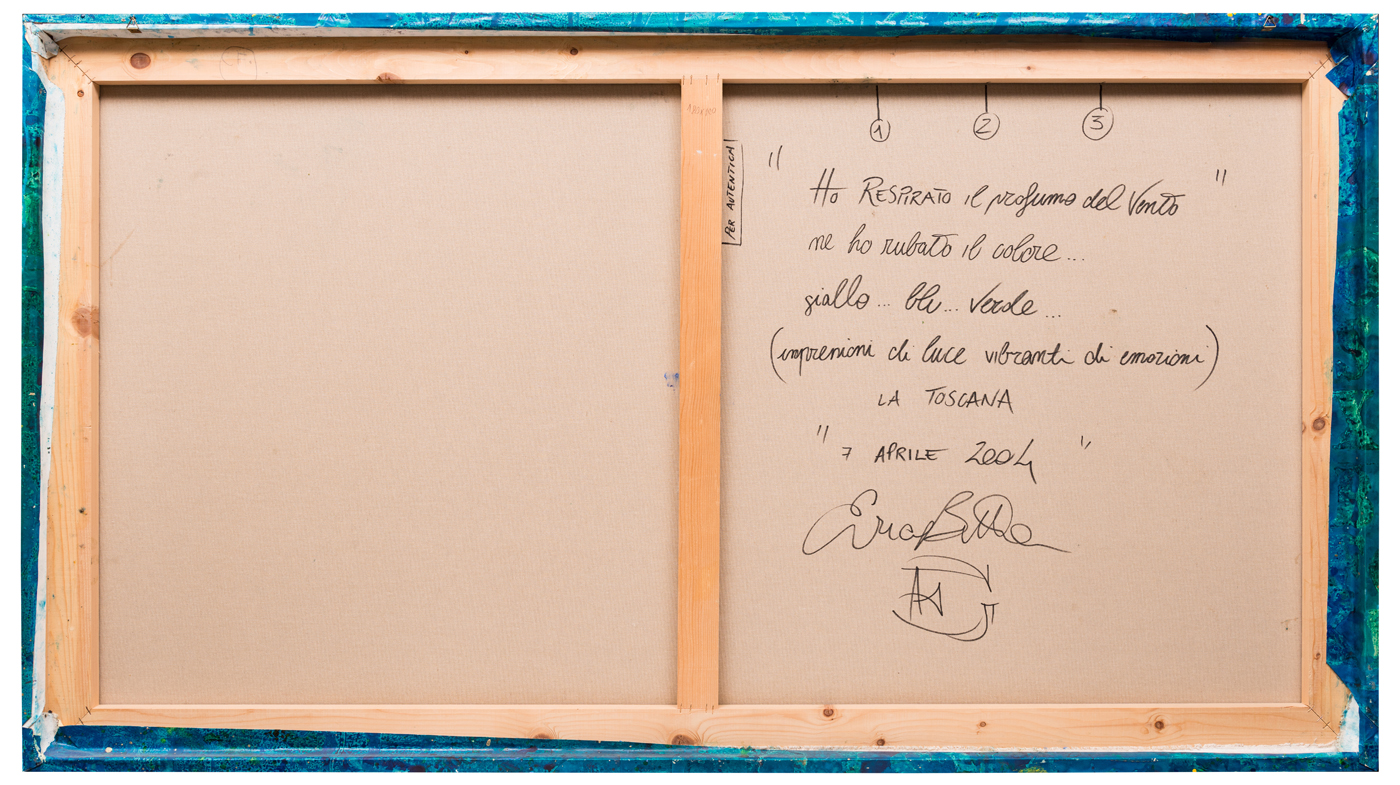 1 2 3
PER AUTENTICA
" Ho RESPIRATO il profumo del Vento "
ne ho rubato il colore...
giallo... blu... verde...
(impressioni di luce vibranti di emozioni)
LA TOSCANA
" 7 APRILE 2004 "